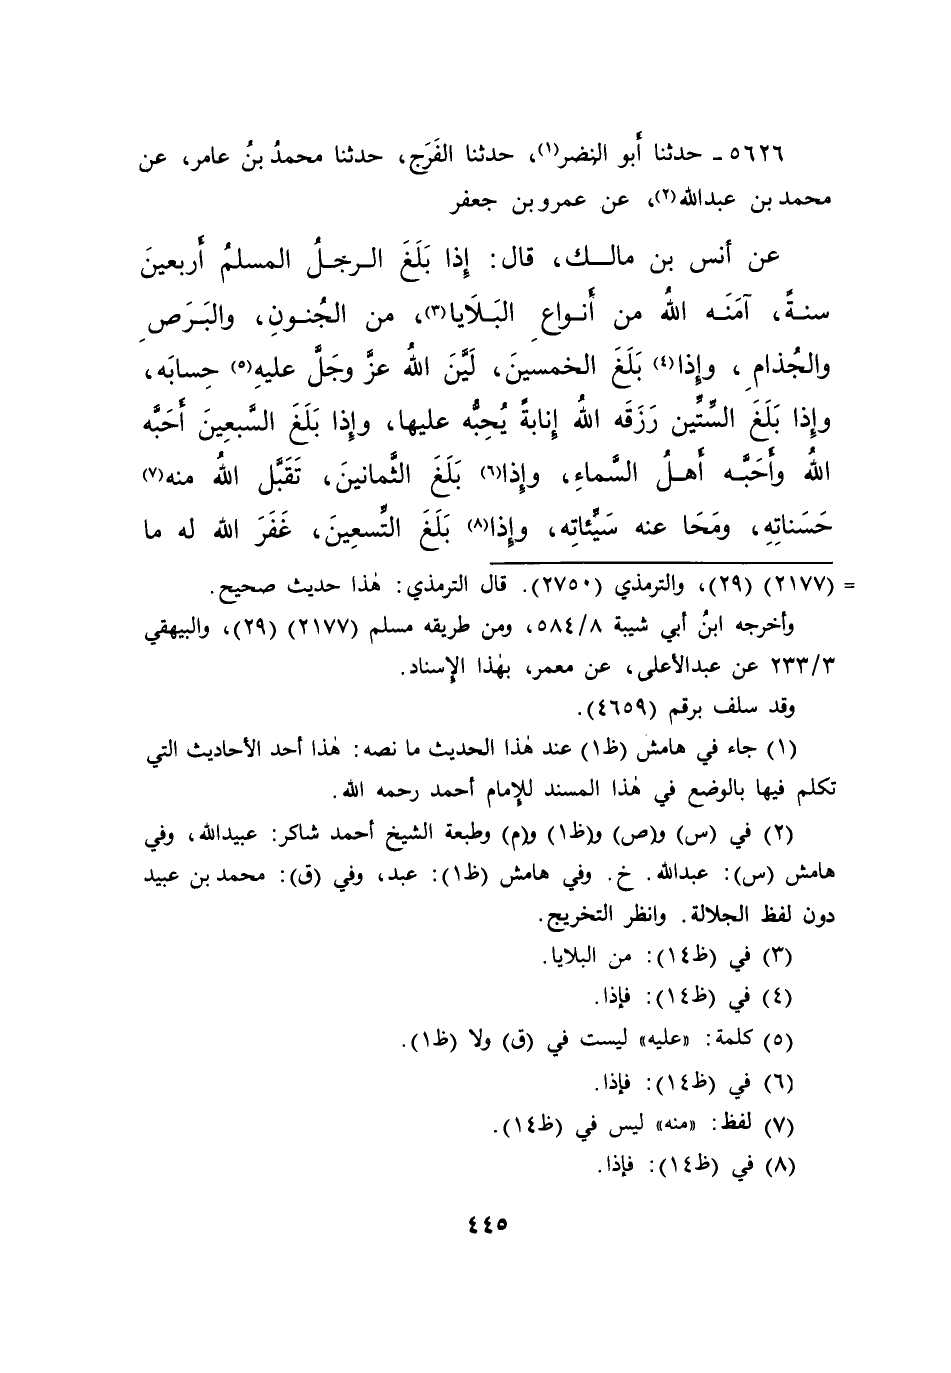 ٥٦٢٦ ـ حدثنا أَبو النضر(١)، حدثنا الفَرَج، حدثنا محمدُ بنُ عامر، عن
محمد بن عبدالله(٢)، عن عمرو بن جعفر
عن أنس بن مالك، قال: إِذا بَلَغَ الرجلُ المسلمُ أَربعينَ
سنةً، آمَنَه اللهُ من أَنواعِ البَلَايا(٣)، من الجُنونِ، والبَرَصِ
والجُذامِ، وإِذا(٤) بَلَغَ الخمسينَ، لَيَّنَ اللهُ عزَّ وجَلَّ عليهِ(٥) حِسابَه،
وإِذا بَلَغَ السِّتِّين رَزَقَه اللهُ إِنابةً يُحِبُّه عليها، وإِذا بَلَغَ السَّبعِينَ أَحَبَّه
اللهُ وأَحَبَّه أَهلُ السَّماءِ، وإِذا(٦) بَلَغَ الثَّمانينَ، تَقَبَّل اللهُ منه(٧)
حَسَناتِهِ، ومَحَا عنه سَيِّئاتِه، وإِذا(٨) بَلَغَ التِّسعِينَ، غَفَرَ الله له ما
= (٢١٧٧) (٢٩)، والترمذي (٢٧٥٠). قال الترمذي: هٰذا حديث صحيح.
وأخرجه ابنُ أبي شيبة ٥٨٤/٨، ومن طريقه مسلم (٢١٧٧) (٢٩)، والبيهقي
٢٣٣/٣ عن عبدالأعلى، عن معمر، بهٰذا الإِسناد.
وقد سلف برقم (٤٦٥٩).
(١) جاء في هامش (ظ١) عند هٰذا الحديث ما نصه: هٰذا أحد الأحاديث التي
تكلم فيها بالوضع في هٰذا المسند للإِمام أحمد رحمه الله.
(٢) في (س) و(ص) و(ظ١) و(م) وطبعة الشيخ أحمد شاكر: عبيدالله، وفي
هامش (س): عبدالله. خ. وفي هامش (ظ١): عبد، وفي (ق): محمد بن عبيد
دون لفظ الجلالة. وانظر التخريج.
(٣) في (ظ١٤): من البلايا.
(٤) في (ظ١٤): فإذا.
(٥) كلمة: «عليه» ليست في (ق) ولا (ظ١).
(٦) في (ظ١٤): فإذا.
(٧) لفظ: «منه» ليس في (ظ١٤).
(٨) في (ظ١٤): فإذا.
٤٤٥